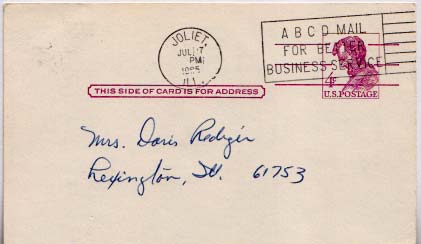 JOLIET,
JUL 7
PM
1965
ILL.
A B C D MAIL
FOR BETTER
BUSINESS SERVICE
4¢
U.S. POSTAGE
THIS SIDE OF CARD IS FOR ADDRESS
Mrs. Doris Rediger
Lexington, Ill. 61753